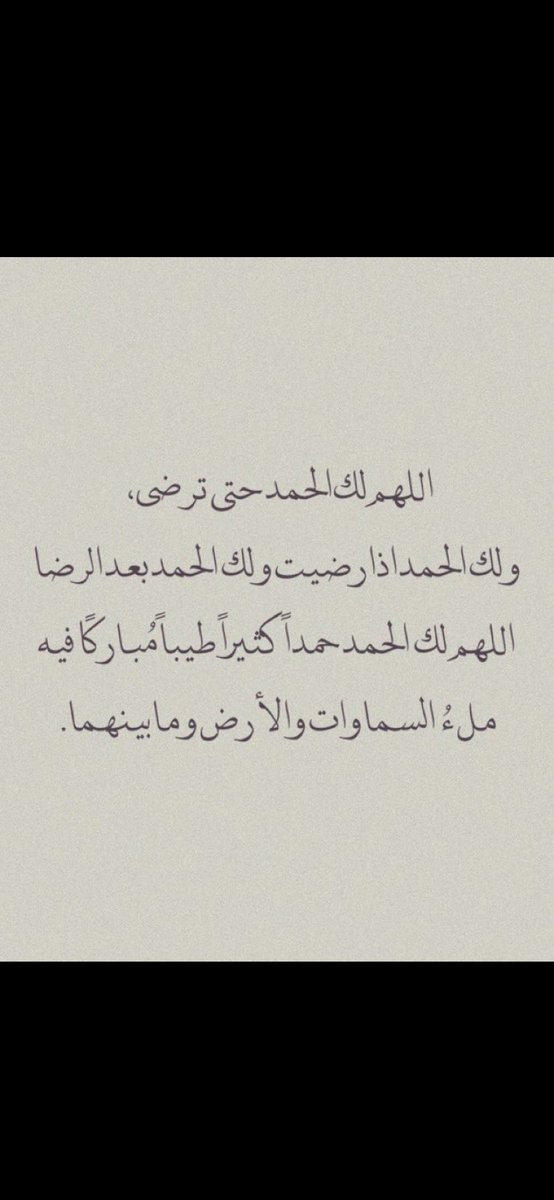 اللهم لك الحمد حتى ترضى،
ولك الحمد اذا رضيت ولك الحمد بعد الرضا
اللهم لك الحمد حمداً كثيراً طيباً مُباركًا فيه
ملءُ السماوات والأرض وما بينهما.